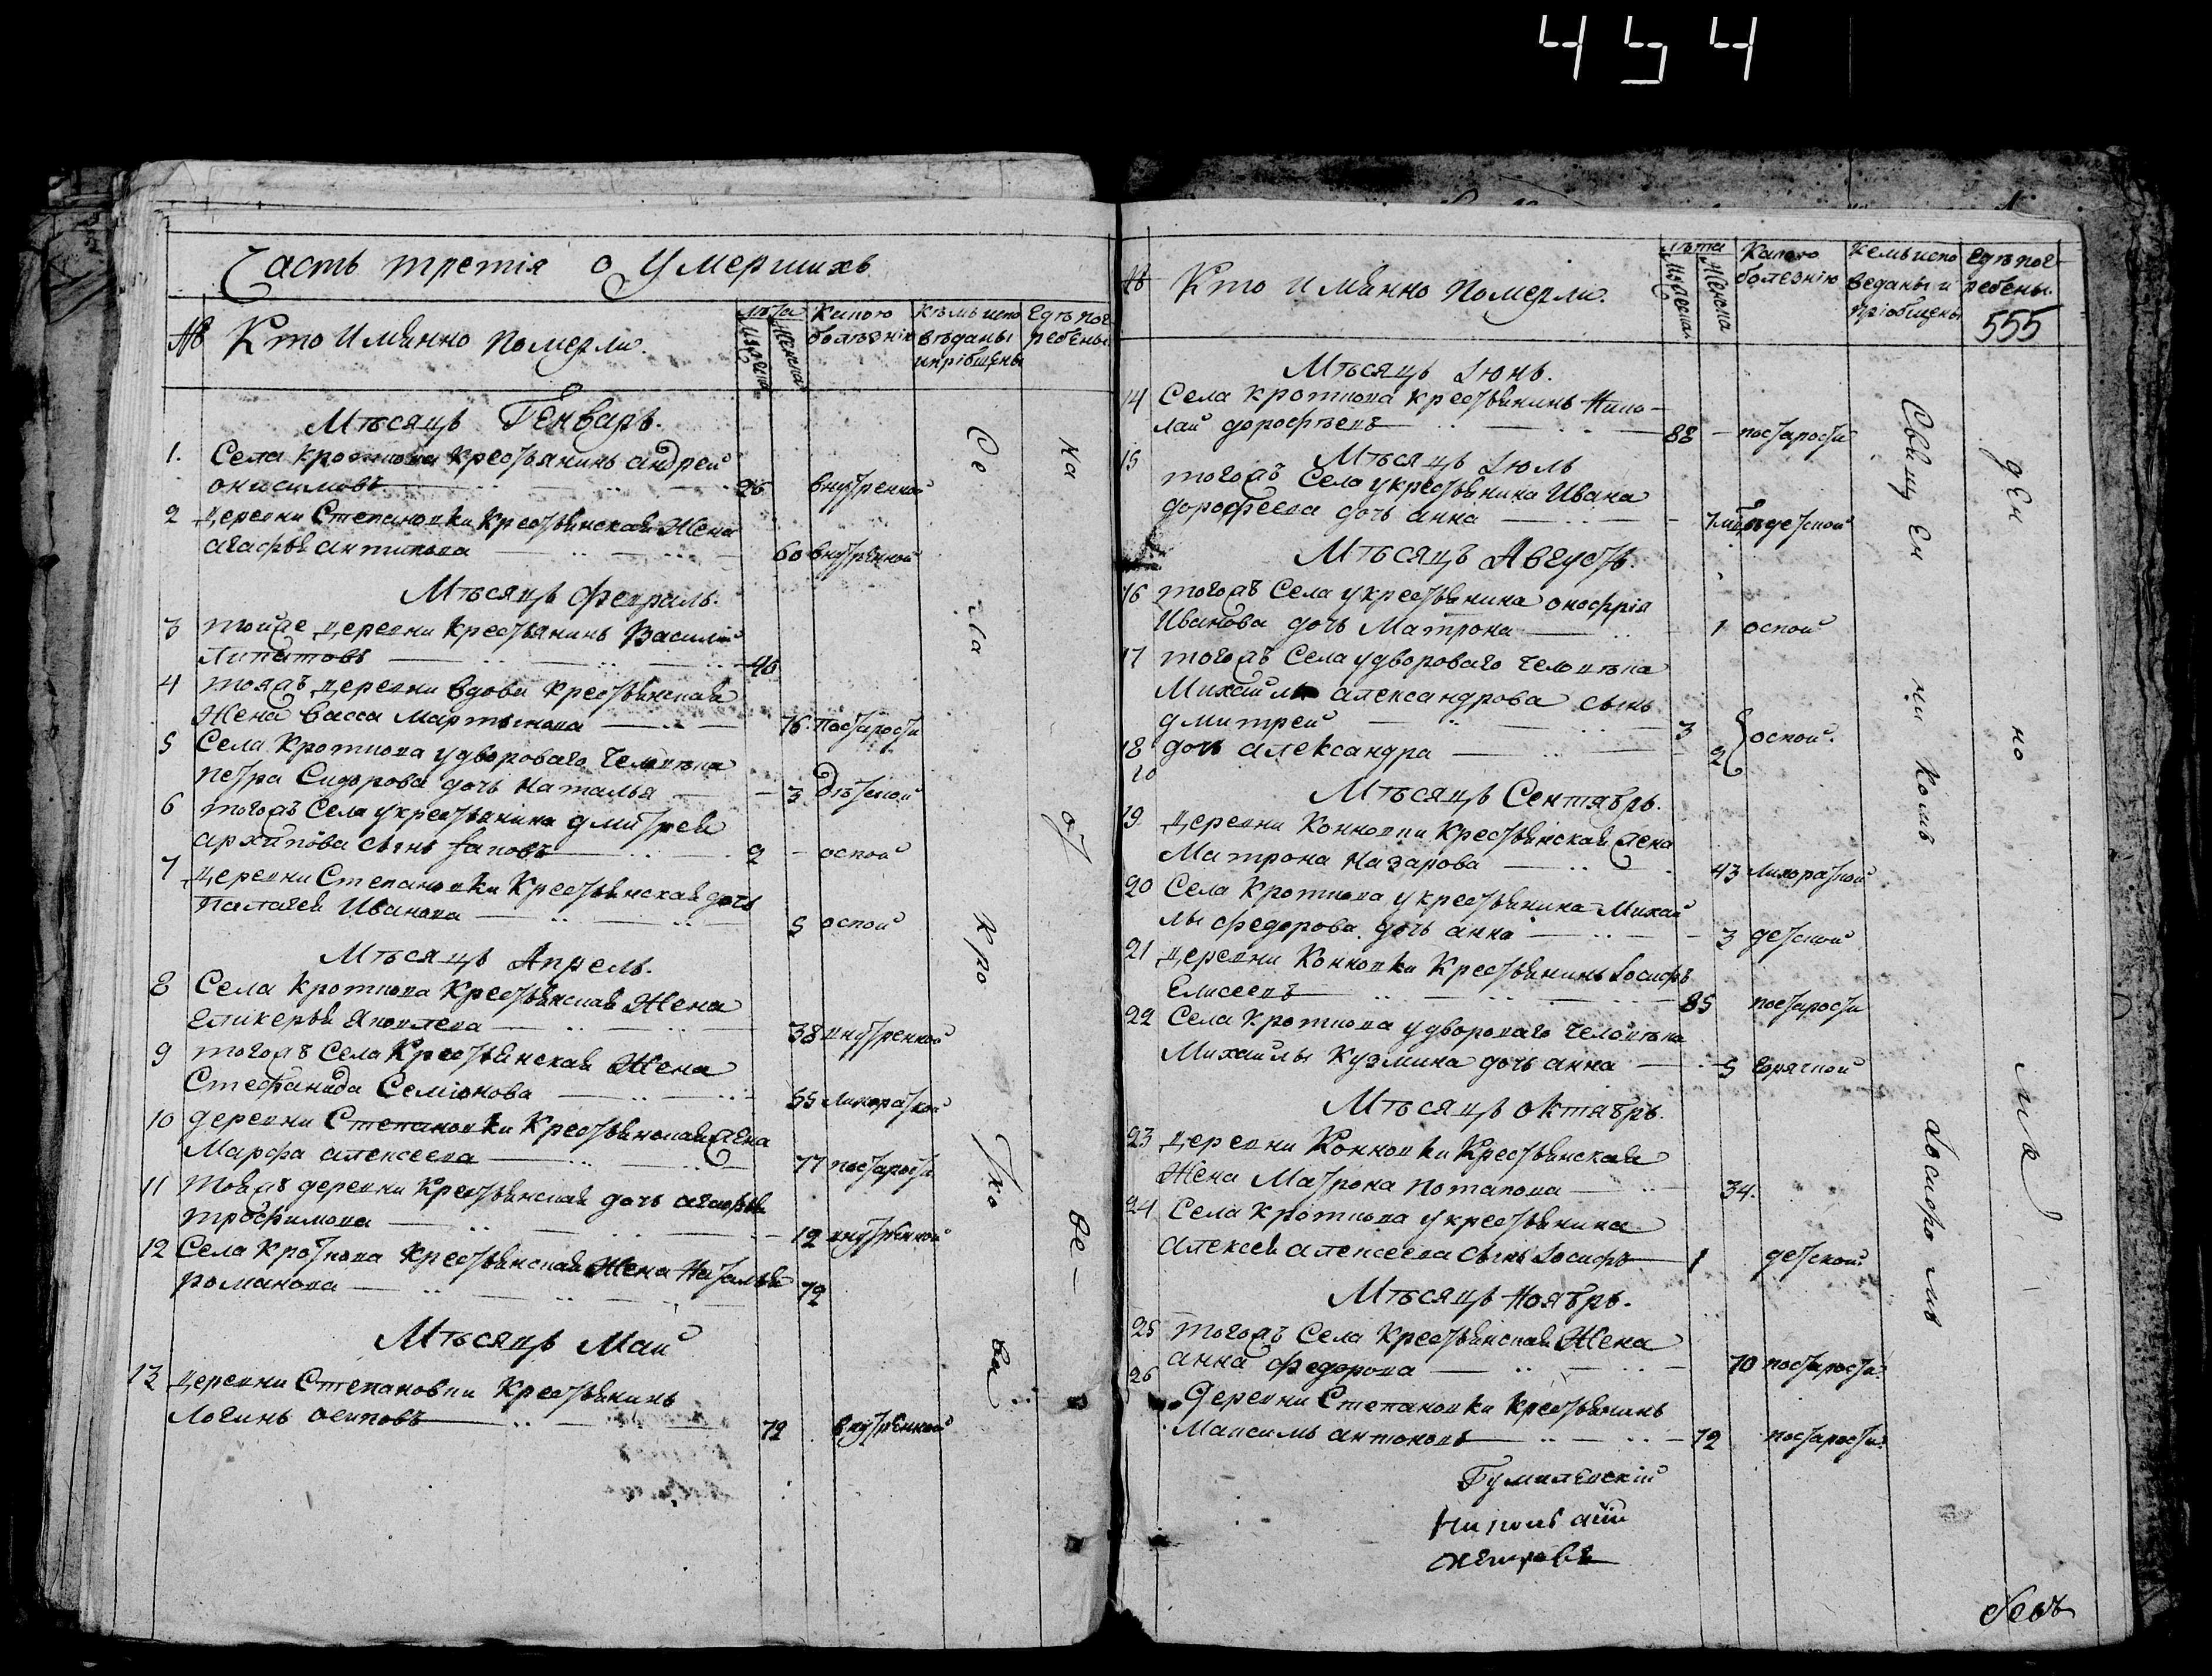 454
Часть третія о Умершихъ
№ Кто имянно померли. лѣта Какою Кемъ испо Гдѣ пог
Мужеска Женска болезнію вѣданы ребены
ипріобщены
Мѣсяцъ Генварь.
1. Села Кроткова крестьянинъ андрей
онисимовъ 26 внутренной
2 Деревни Степановки Крестьянская Жена
агафья антипова 60 внутренной
Мѣсяцъ февраль.
3 тойже деревни крестьянинъ Василий
Липатовъ 46
4 тояжъ деревни вдова крестьянская
Жена васса Мартынова 76. Постарости
5 Села Кроткова удвороваго Человѣка
петра Сидорова дочь Наталья 3 дѣтской
6 тогожъ Села укрестьянина дмитрея
архипова сынъ 2 оспой
7 деревни Степановки Крестьянская дочь
Палагея Иванова 5 оспой
Мѣсяцъ Апрель.
8 Села Кроткова Крестьянская Жена
Гликерья Яковлева 38 внутренной
9 тогожъ Села Крестьянская Жена
Стефанида Семіонова 55 Лихораткой
10 деревни Степановки Крестьянская жена
Марфа алексеева 77 постарости
11 тояжъ деревни Крестьянская дочь агафья
трофимова 12 внутренной
12 Села Кроткова Крестьянская Жена Наталья
романова 72
Мѣсяцъ Маи
13 деревни Степановки Крестьянинъ
Логинъ осиповъ 72 внутренной
На
Се ла Крот ко ва
№ Кто имянно померли. лѣта Какою Кемъ испо Гдѣ пог
Мужеска Женска болезнію веданы и ребены
пріобщены 555
Мѣсяцъ Іюнь.
14 Села Кроткова крестьянинъ Нико
лай дорофѣевъ 88 постарости
Мѣсяцъ Іюль
15 тогожъ Села укрестьянина Ивана
дорофеева дочь анна 7 детской
Мѣсяцъ Августъ.
16 тогожъ Села укрестьянина онофрія
Иванова дочь Матрона 1 оспой
17 тогожъ Села удвороваго человѣка
Михайлы александрова сынъ
дмитрей 3
оспой.
18 дочь александра 2
Мѣсяцъ Сентябрь.
19 деревни Конновки Крестьянская жена
Матрона Назарова 43 Лихораткой
20 Села Кроткова укрестьянина Михай
лы федорова дочь анна 3 детской
21 деревни Конновки Крестьянинъ Іосифъ
Елисеевъ 85 постарости
22 Села Кроткова удвороваго человѣка
Михайлы Кузмина дочь анна 5 Горячкой
Мѣсяцъ октябрь.
23 деревни Конновки Крестьянская
Жена Матрона потапова 34.
24 Села Кроткова укрестьянина
алексея алексеева сынъ Іосифъ 1 детской
Мѣсяцъ Ноябрь.
25 тогожъ Села Крестьянская Жена
анна федорова 70 постарости.
26 деревни Степановки крестьянинъ
Максимъ антоновъ 72 постарости.
Свящ ен ни комъ Іосифо мъ
Гумилевскій
Николай
Петровъ